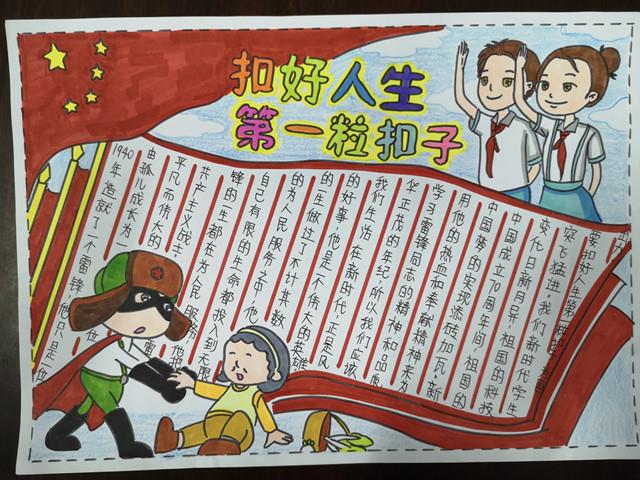 扣好人生
第一粒扣子
1940年造就了一个雷锋,他只是一位
由孤儿成长为一位
平凡而伟大的
共产主义战士,雷
锋的一生都在为人民服务,他把
自己有限的生命都投入到无限
的为人民服务之中,他
的一生做过了不计其数
的好事,他是一个伟大的英雄
我们生活在新时代,正是风
华正茂的年纪,所以我们应该
学习雷锋同志的精神和品质
用他的热血和奉献精神来为
中国梦的实现添砖加瓦.新
中国成立70周年间,祖国的
变化日新月异,祖国的科技
突飞猛进,我们新时代学生
要扣好人生第一粒扣子